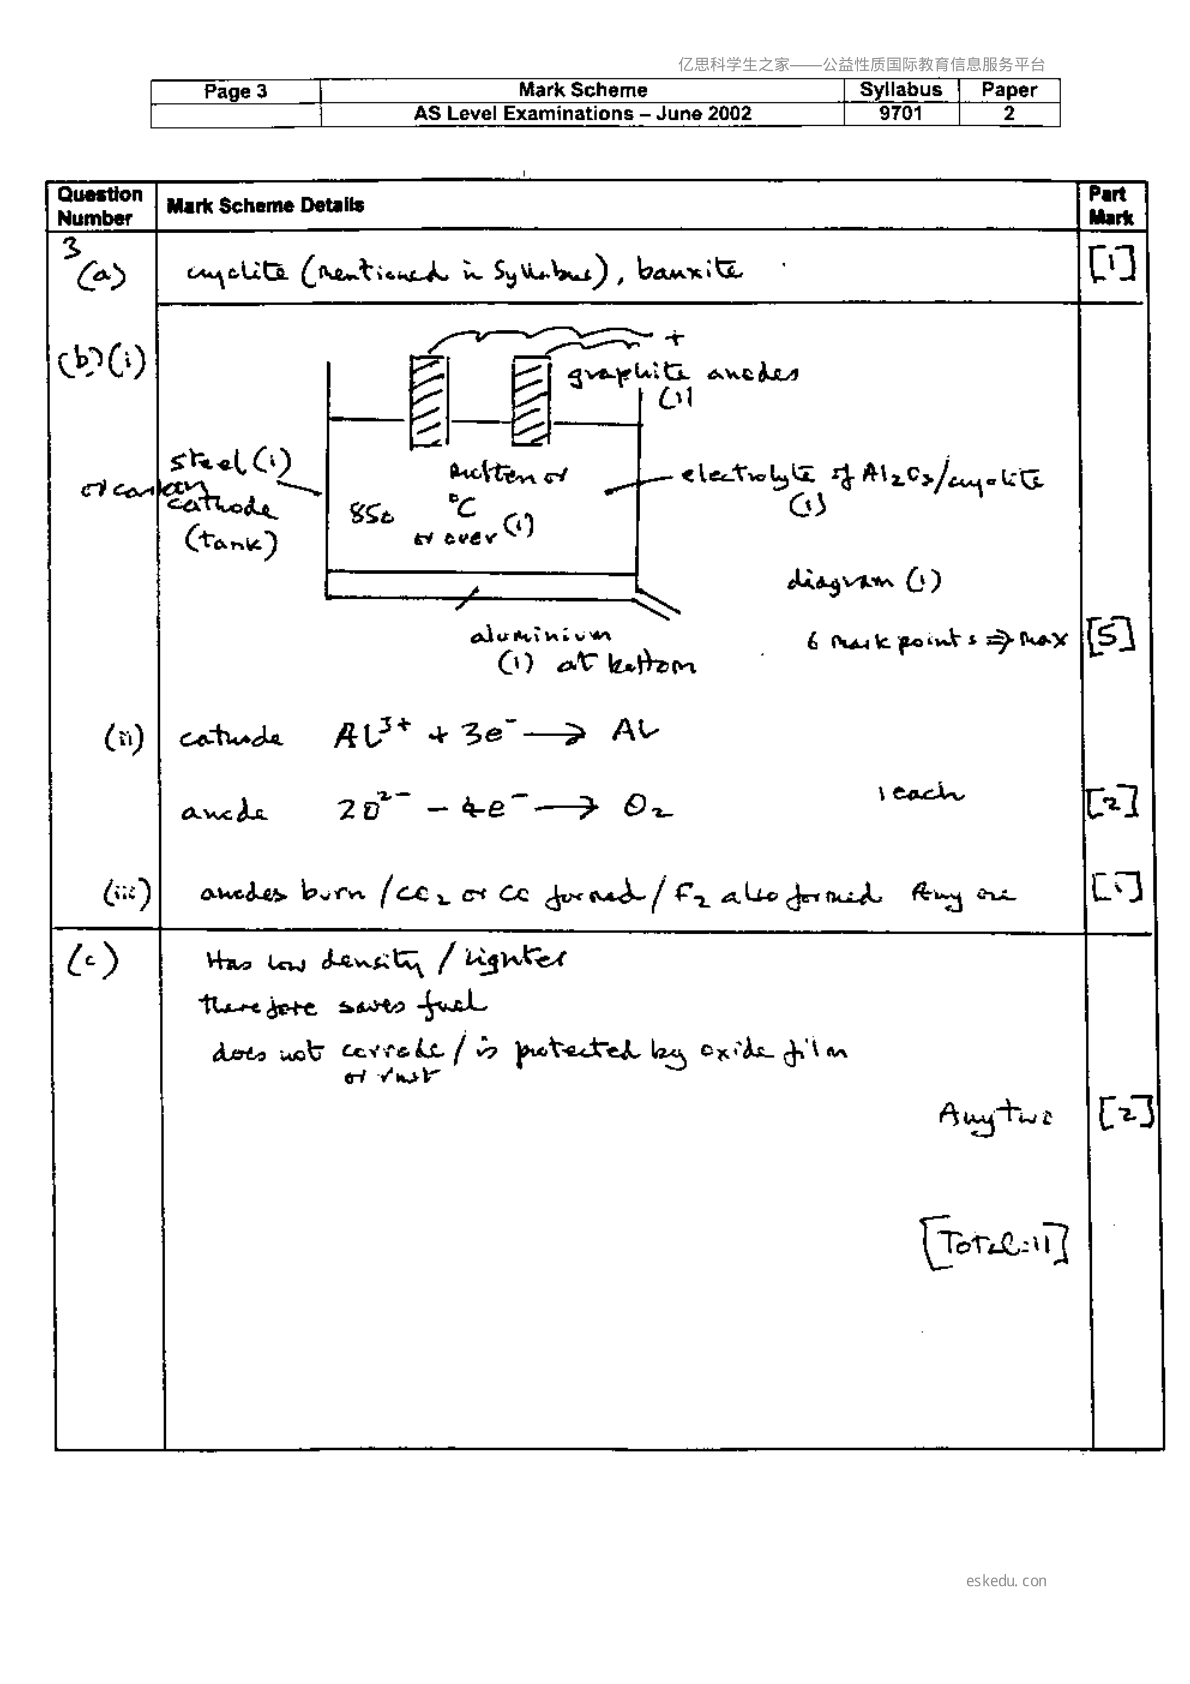 亿思科学生之家——公益性质国际教育信息服务平台
Page 3 Mark Scheme Syllabus Paper
AS Level Examinations – June 2002 9701 2
Question Number Mark Scheme Details Part Mark
3
(a) cryolite (mentioned in Syllabus), bauxite [1]
(b)(i)
+
graphite anodes
(1)
steel (1)
or carbon
cathode
(tank)
molten or
850 °C
or over (1)
electrolyte of Al2O3/cryolite
(1)
diagram (1)
aluminium
(1) at bottom
6 mark points ⇒ max [5]
(ii) cathode Al³⁺ + 3e⁻ → Al
anode 2O²⁻ − 4e⁻ → O₂ 1 each [2]
(iii) anodes burn / CO₂ or CO formed / F₂ also formed Any one [1]
(c) Has low density / lighter
therefore saves fuel
does not corrode / is protected by oxide film
or rust
Any two [2]
[Total:11]
eskedu. con